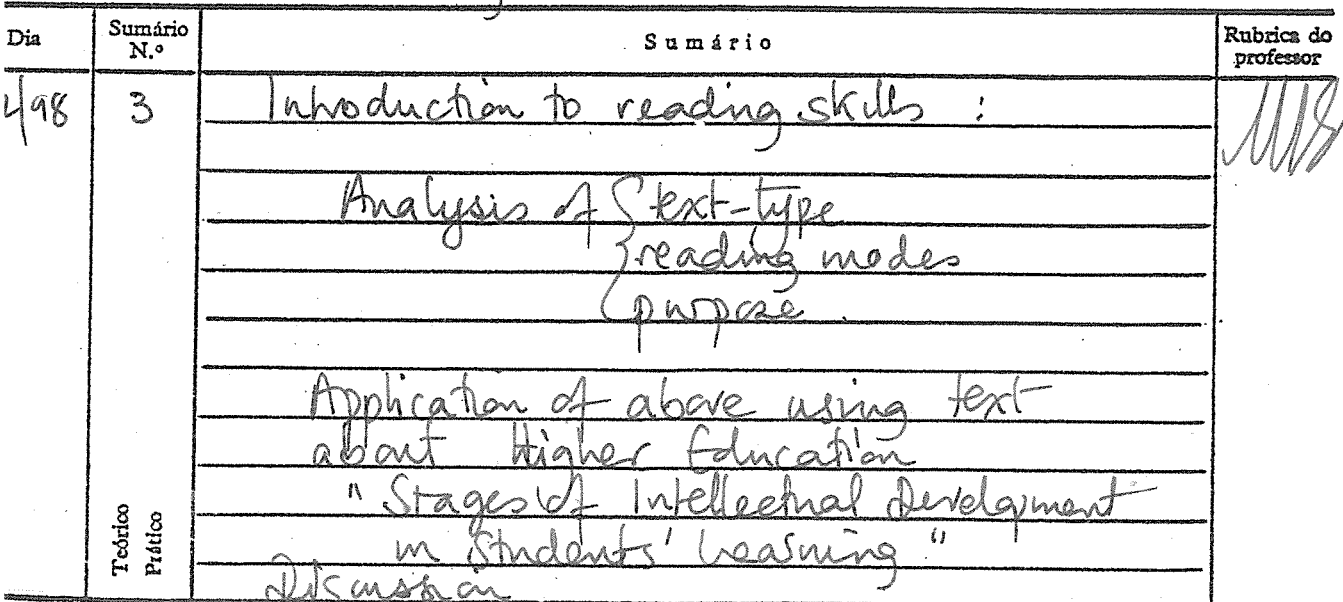 Dia
Sumário N.º
Sumário
Rubrica do professor
4/98
3
Introduction to reading skills :
Analysis of { text-type
reading modes
purpose.
Application of above using text
about Higher Education
"Stages of Intellectual Development
in Students' Learning"
Discussion
Teórico
Prático